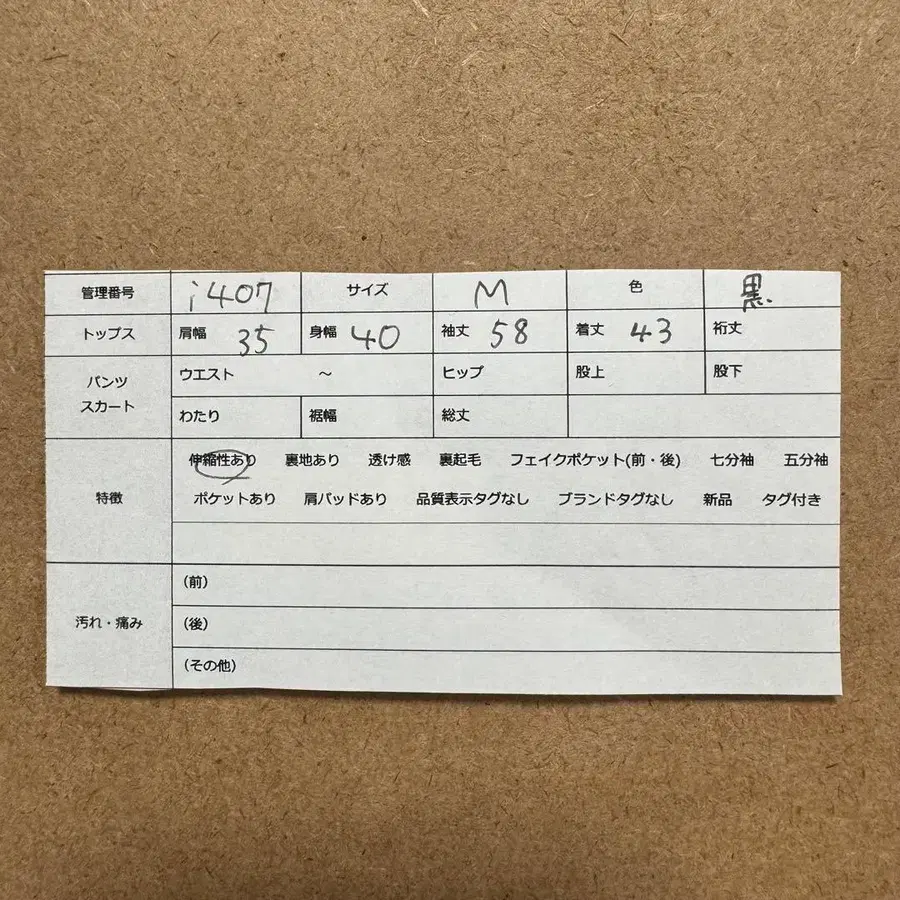 管理番号 i407 サイズ M 色 黒
トップス 肩幅 35 身幅 40 袖丈 58 着丈 43 裄丈
パンツ スカート ウエスト ～ ヒップ 股上 股下
わたり 裾幅 総丈
特徴 伸縮性あり 裏地あり 透け感 裏起毛 フェイクポケット(前・後) 七分袖 五分袖
ポケットあり 肩パッドあり 品質表示タグなし ブランドタグなし 新品 タグ付き
汚れ・痛み (前)
(後)
(その他)